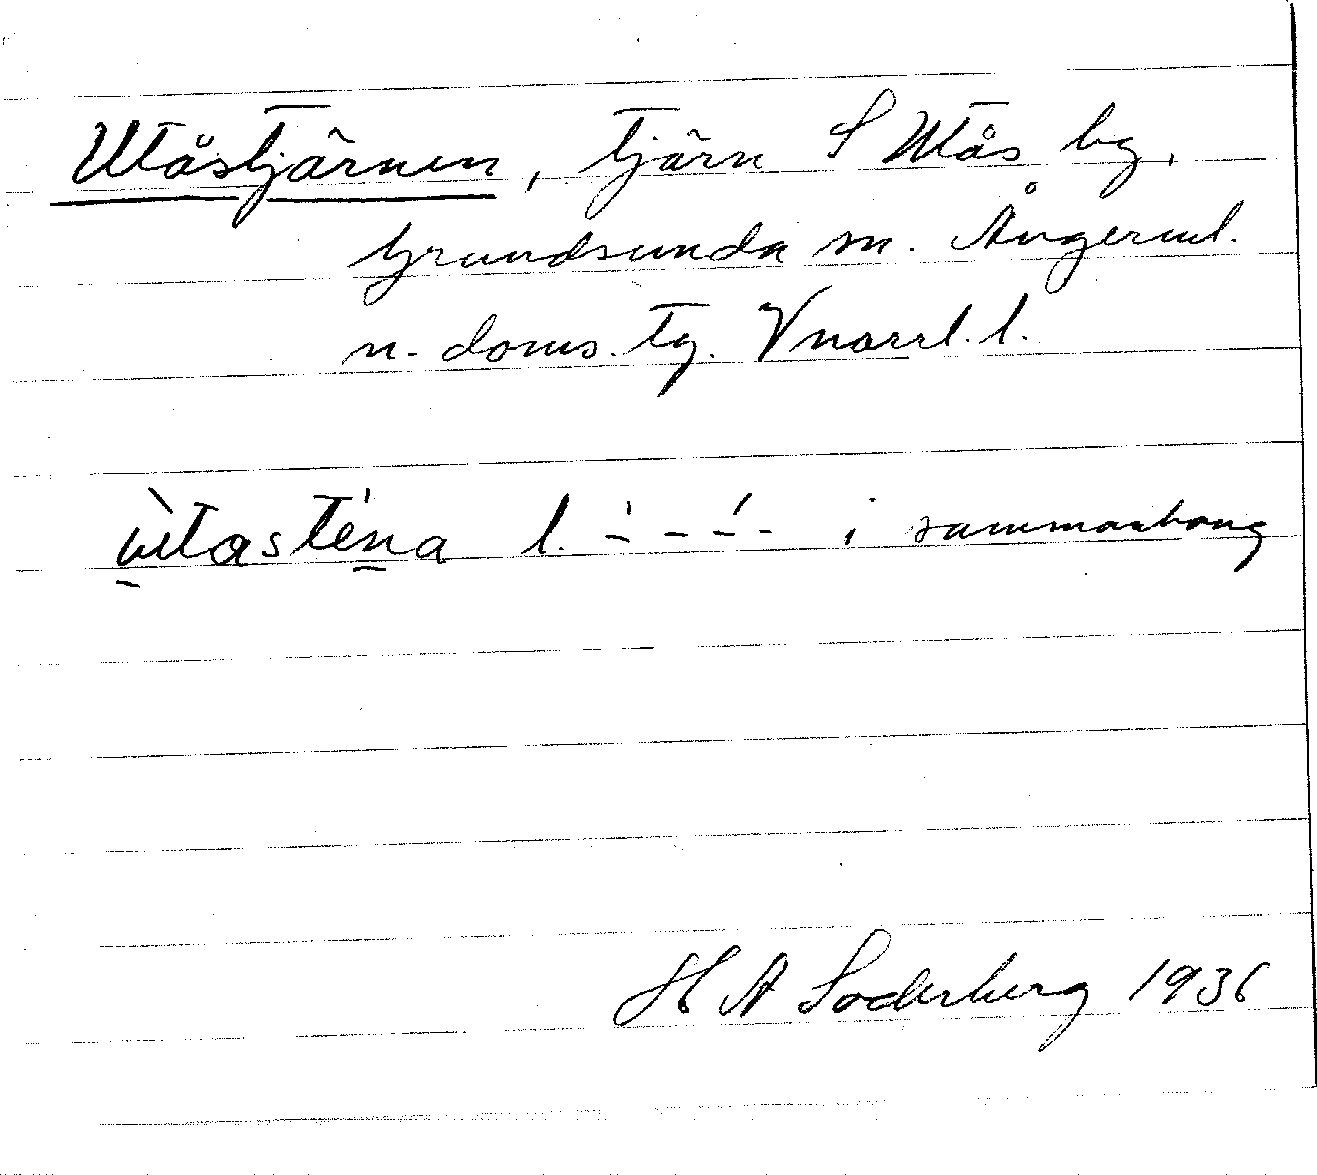 Utåstjärnen, tjärn S Utås by,
Grundsunda sn. Ångerml.
n. doms. tg. Vnorrl. l.
ùtasténa l. -́ - -́ - i sammanhang
H A Söderberg 1936